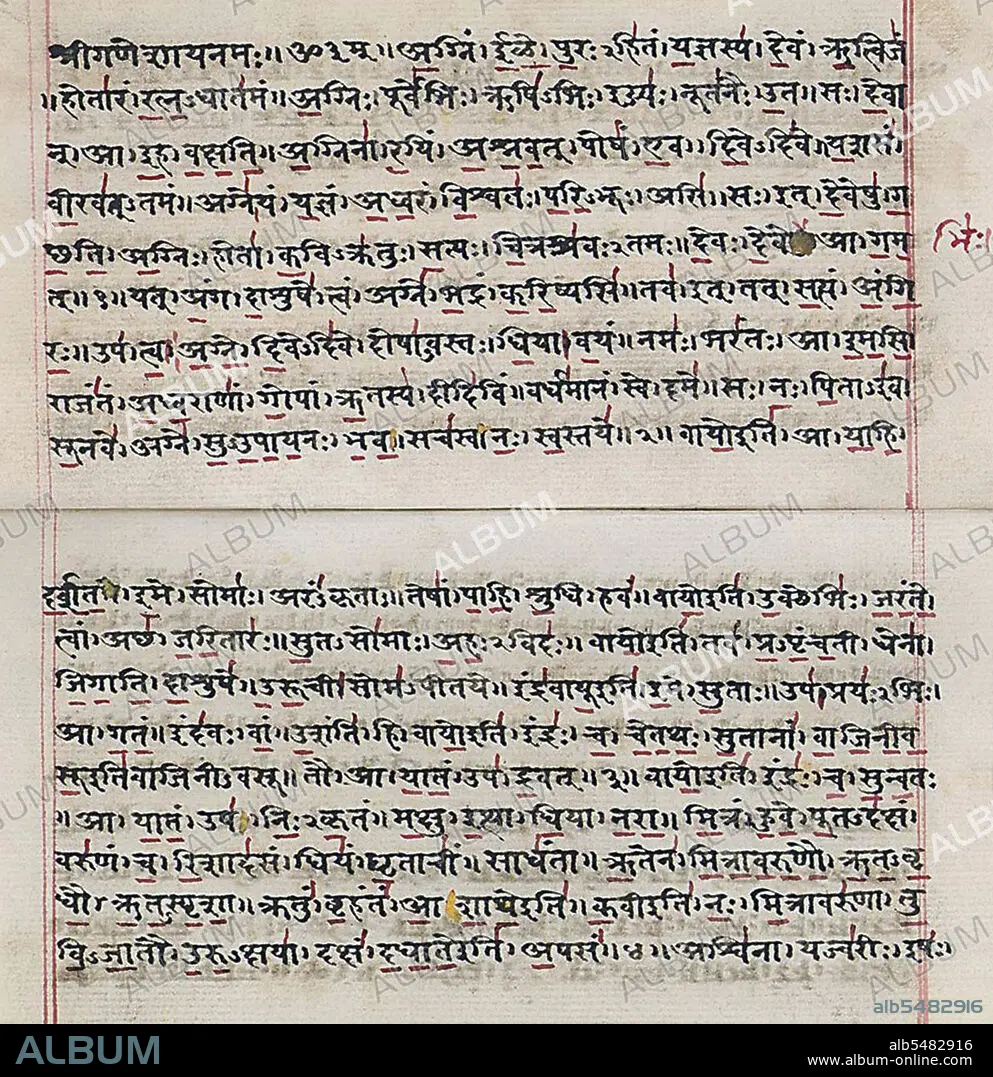 श्रीगणेशायनमः॥ ॐ३म्॥ अग्निं। ईळे। पुरःऽहितं। यज्ञस्य। देवं। ऋत्विजं
॥होतारं। रत्नऽधातमं॥ अग्निः। पूर्वेभिः। ऋषिऽभिः। ईड्यः। नूतनैः। उत। सः। देवा
न्। आ। इह। वक्षति॥ अग्निना। रयिं। अश्नवत्। पोषं। एव। दिवेऽदिवे॥ यशसं।
वीरवत्ऽतमं॥ अग्ने। यं। यज्ञं। अध्वरं। विश्वतः। परिऽभूः। असि॥ सः। इत्। देवेषु। ग
छति। अग्निः। होता। कविऽक्रतुः। सत्यः। चित्रश्रवःऽतमः॥ देवः। देवे आ। गम
भिः।
त्॥१॥ यत्। अंग। दाशुषे। त्वं। अग्ने। भद्रं। करिष्यसि॥ तव। इत्। तत्। सत्यं। अंगि
रः॥ उप। त्वा। अग्ने। दिवेऽदिवे। दोषाऽवस्तः। धिया। वयं॥ नमः। भरंतः। आ। इमसि
राजंतं। अध्वराणां। गोपां। ऋतस्य। दीदिविं॥ वर्धमानं। स्वे। दमे॥ सः। नः। पिताऽइव।
सूनवे। अग्ने। सुऽउपायनः। भव॥ सचस्व। नः। स्वस्तये॥२॥ वायोइति। आ। याहि।
दर्शत। इमे। सोमाः। अरंऽकृताः॥ तेषां। पाहि। श्रुधि। हवं॥ वायोइति। उक्थेभिः। जरंते।
त्वां। अछ। जरितारः॥ सुतऽसोमाः। अहःऽविदः॥ वायोइति। तव। प्रऽपृंचती। धेना।
जिगाति। दाशुषे॥ उरूची। सोमऽपीतये॥ इंद्रवायूइति। इमे। सुताः॥ उप। प्रयःऽभिः।
आ। गतं॥ इंदवः। वां। उशंति। हि॥ वायोइति। इंद्रः। च। चेतथः। सुतानां। वाजिनीव
सूइतिवाजिनीऽवसू॥ तौ। आ। यातं। उप। द्रवत्॥३॥ वायोइति। इंद्रः। च। सुन्वतः
॥आ। यातं। उप। निःऽकृतं॥ मक्षु। इत्था। धिया। नरा॥ मित्रं। हुवे। पूतऽदक्षं।
वरुणं। च। रिशादसं॥ धियं। घृताचीं। साधंता॥ ऋतेन। मित्रावरुणौ। ऋतऽवृ
धौ। ऋतऽस्पृशा॥ क्रतुं। बृहंतं। आशाथेइति॥ कवीइति। नः। मित्रावरुणा। तु
विऽजातौ। उरुऽक्षया॥ दक्षं। दधातेइति। अपसं॥४॥ अश्विना। यज्वरीः। इषः।
alb5482916
ALBUM
alb5482916
www.album-online.com